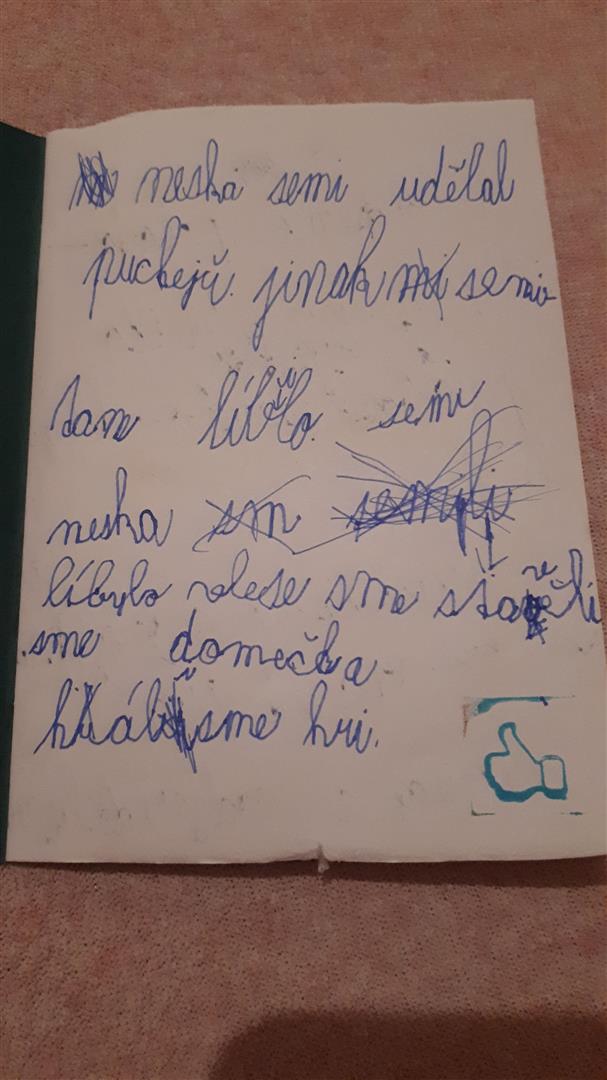 neska semi udělal
puchejř. jinak semi
tam líbilo. semi
neska
líbylo vlese sme stavěli
sme domečka
hráli sme hri.